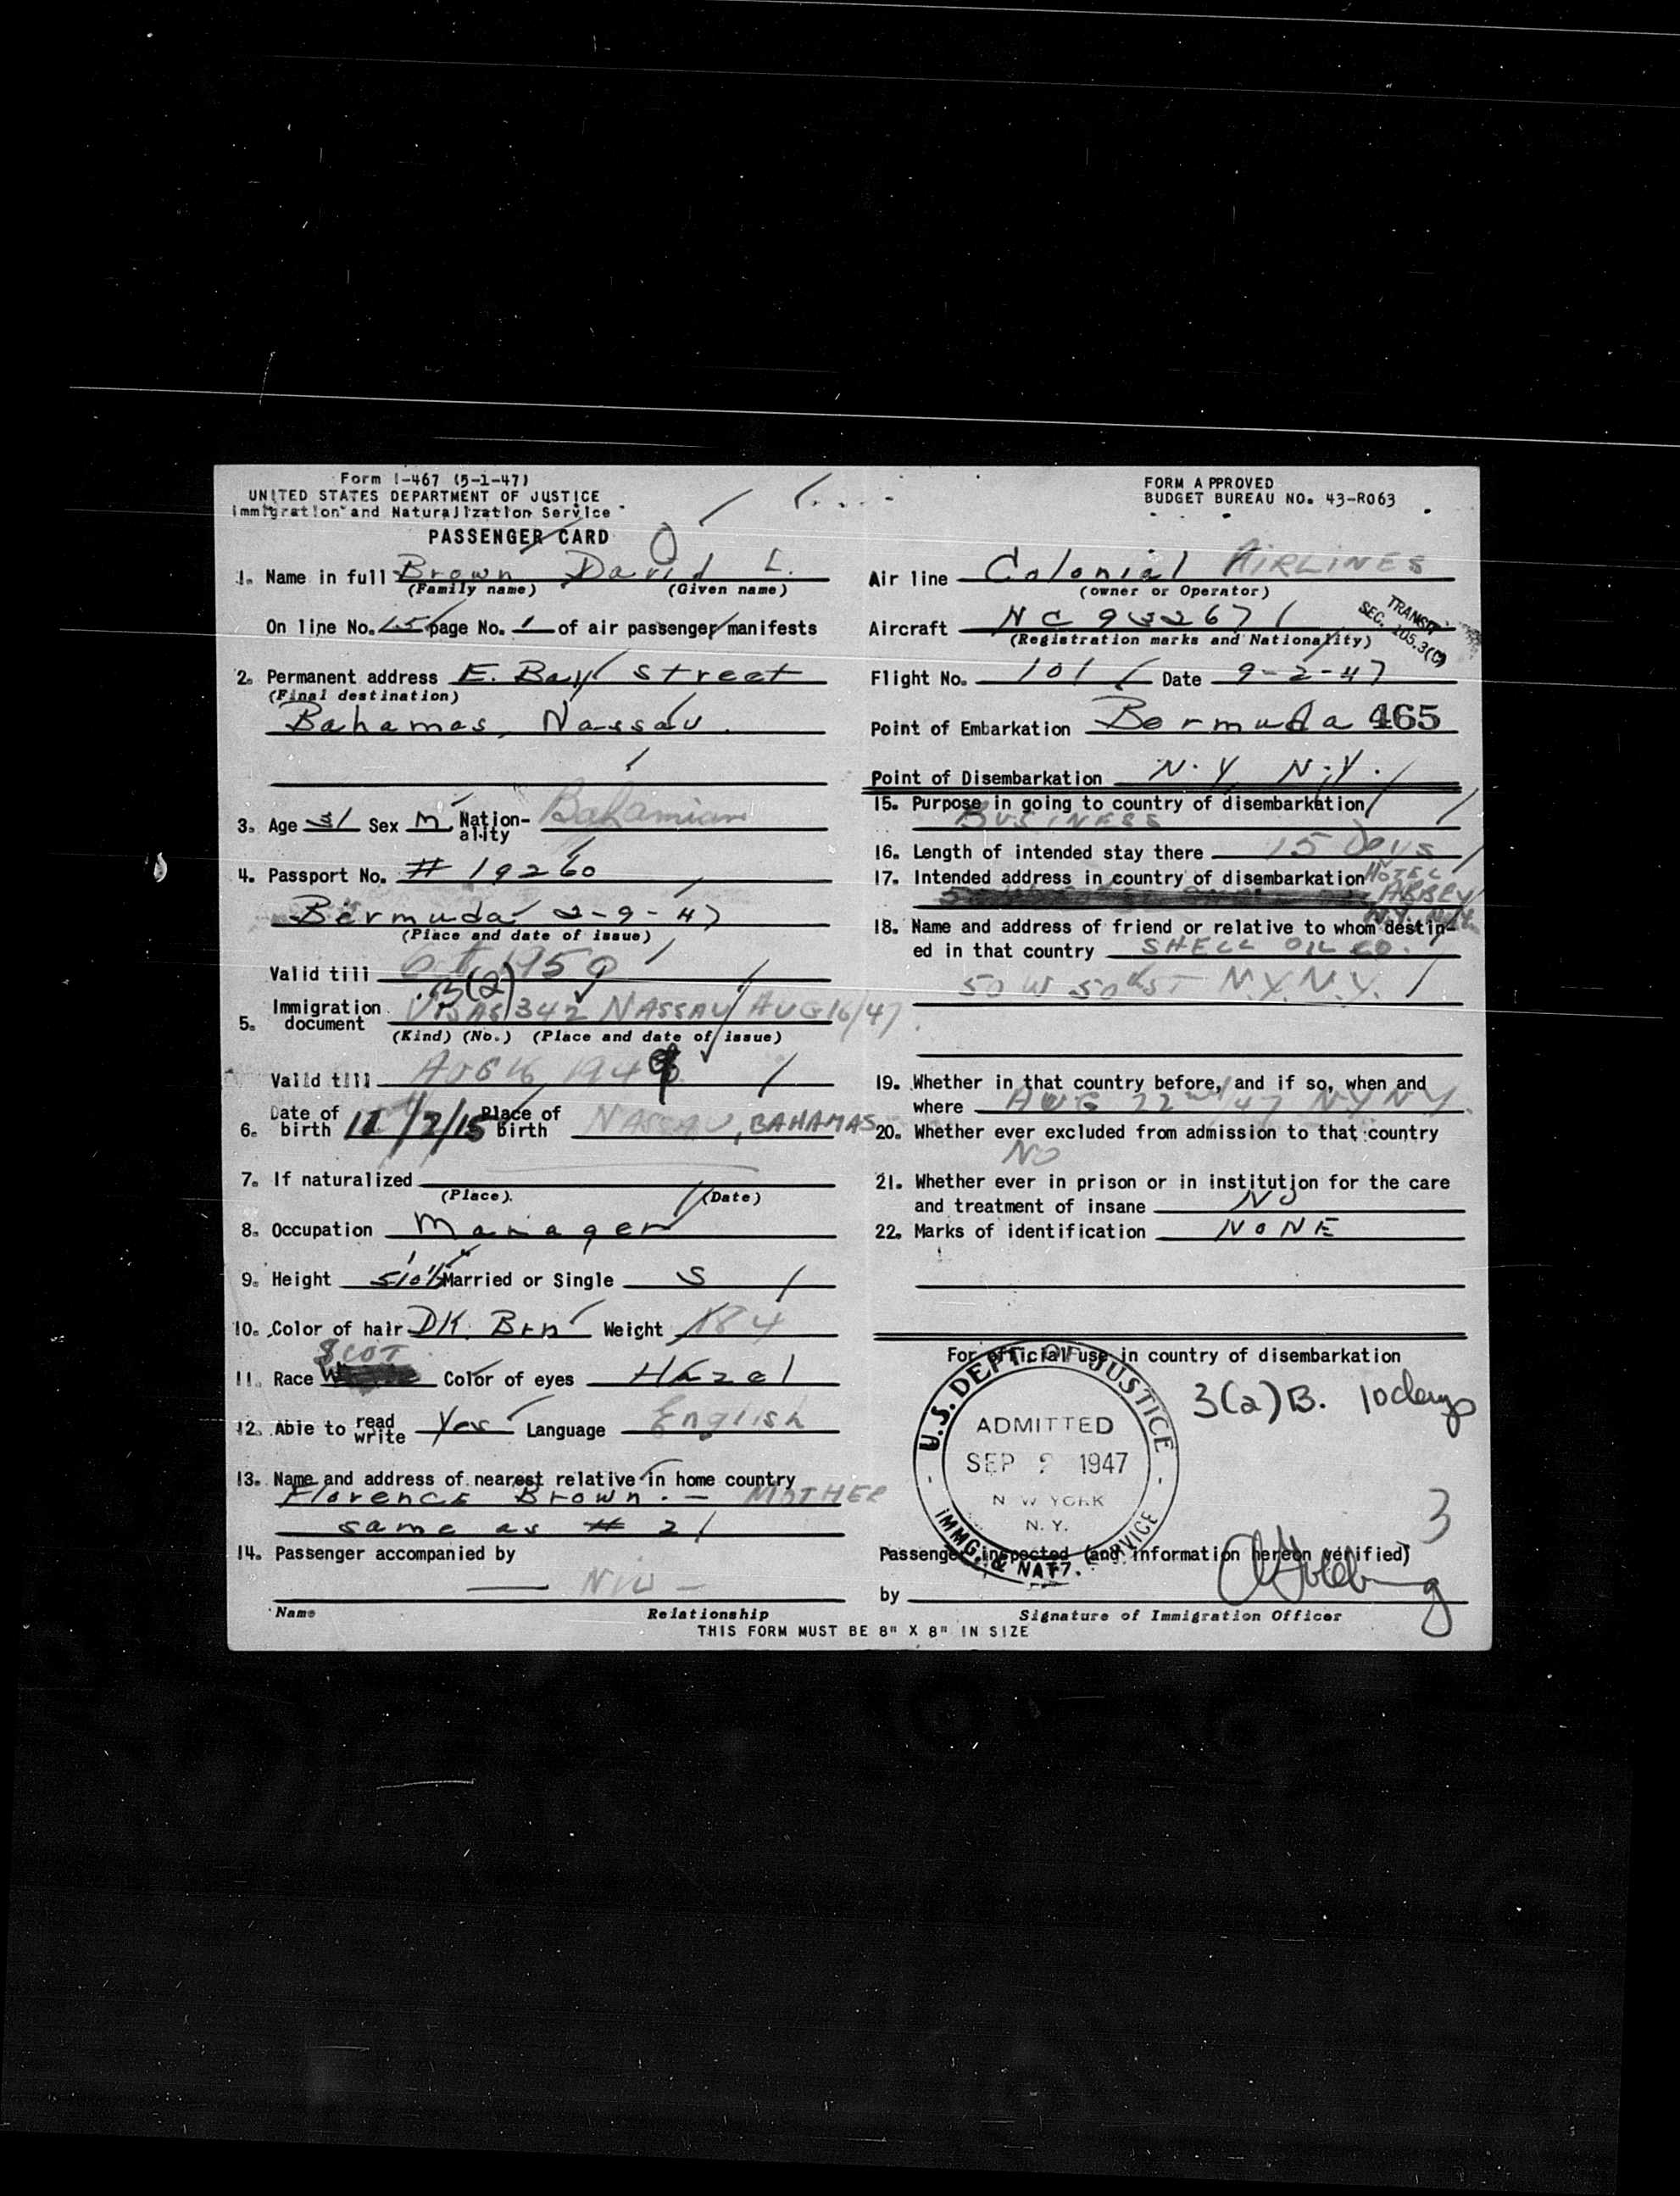 Form I-467 (5-1-47)
UNITED STATES DEPARTMENT OF JUSTICE
Immigration and Naturalization Service
PASSENGER CARD
1. Name in full Brown David L.
(Family name) (Given name)
On line No. 15 page No. 1 of air passenger manifests
2. Permanent address E. Bay Street
(Final destination)
Bahamas, Nassau.
3. Age 31 Sex M Nation-ality Bahamian
4. Passport No. # 19260
Bermuda 2-9-47
(Place and date of issue)
Valid till
3(2)
5. Immigration document VISAS 342 NASSAU AUG 16/47
(Kind) (No.) (Place and date of issue)
Valid till AUG 16 194
6. Date of birth 11/2/15 Place of birth NASSAU, BAHAMAS
7. If naturalized
(Place). (Date)
8. Occupation Manager
9. Height 5'10½" Married or Single S
10. Color of hair DK. Brn Weight 184
11. Race SCOT Color of eyes Hazel
12. Able to read write Yes Language English
13. Name and address of nearest relative in home country
Florence Brown. - MOTHER
same as # 2
14. Passenger accompanied by
Name Relationship
FORM APPROVED
BUDGET BUREAU NO. 43-R063
Air line Colonial AIRLINES
(owner or Operator)
Aircraft NC 93267
(Registration marks and Nationality)
TRANSIT
SEC. 105.3(C)
Flight No. 101 Date 9-2-47
Point of Embarkation Bermuda 465
Point of Disembarkation N.Y. N.Y.
15. Purpose in going to country of disembarkation
BUSINESS
16. Length of intended stay there 15 Days
17. Intended address in country of disembarkation HOTEL
ABBEY
N.Y. N.Y.
18. Name and address of friend or relative to whom destin-
ed in that country SHELL OIL CO.
50 W 50th ST N.Y. N.Y.
19. Whether in that country before, and if so, when and
where AUG 22nd/47 NYNY.
20. Whether ever excluded from admission to that country
NO
21. Whether ever in prison or in institution for the care
and treatment of insane NO
22. Marks of identification NONE
For official use in country of disembarkation
U.S. DEPT. OF JUSTICE
ADMITTED
SEP 2 1947
NEW YORK
N. Y.
IMMG. & NAT'Z. SERVICE
3(2)B. 10 days
3
Passenger inspected (and information hereon verified)
by
Signature of Immigration Officer
THIS FORM MUST BE 8" X 8" IN SIZE